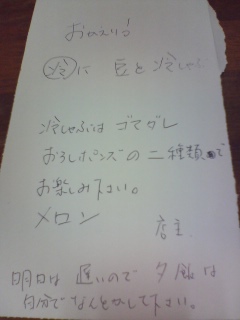 おかえり!
冷に 豆と冷しゃぶ
冷しゃぶは ゴマダレ
おろしポンズの二種類で
お楽しみ下さい。
メロン
店主
明日は 遅いので 夕飯は
自分でなんとかして下さい。